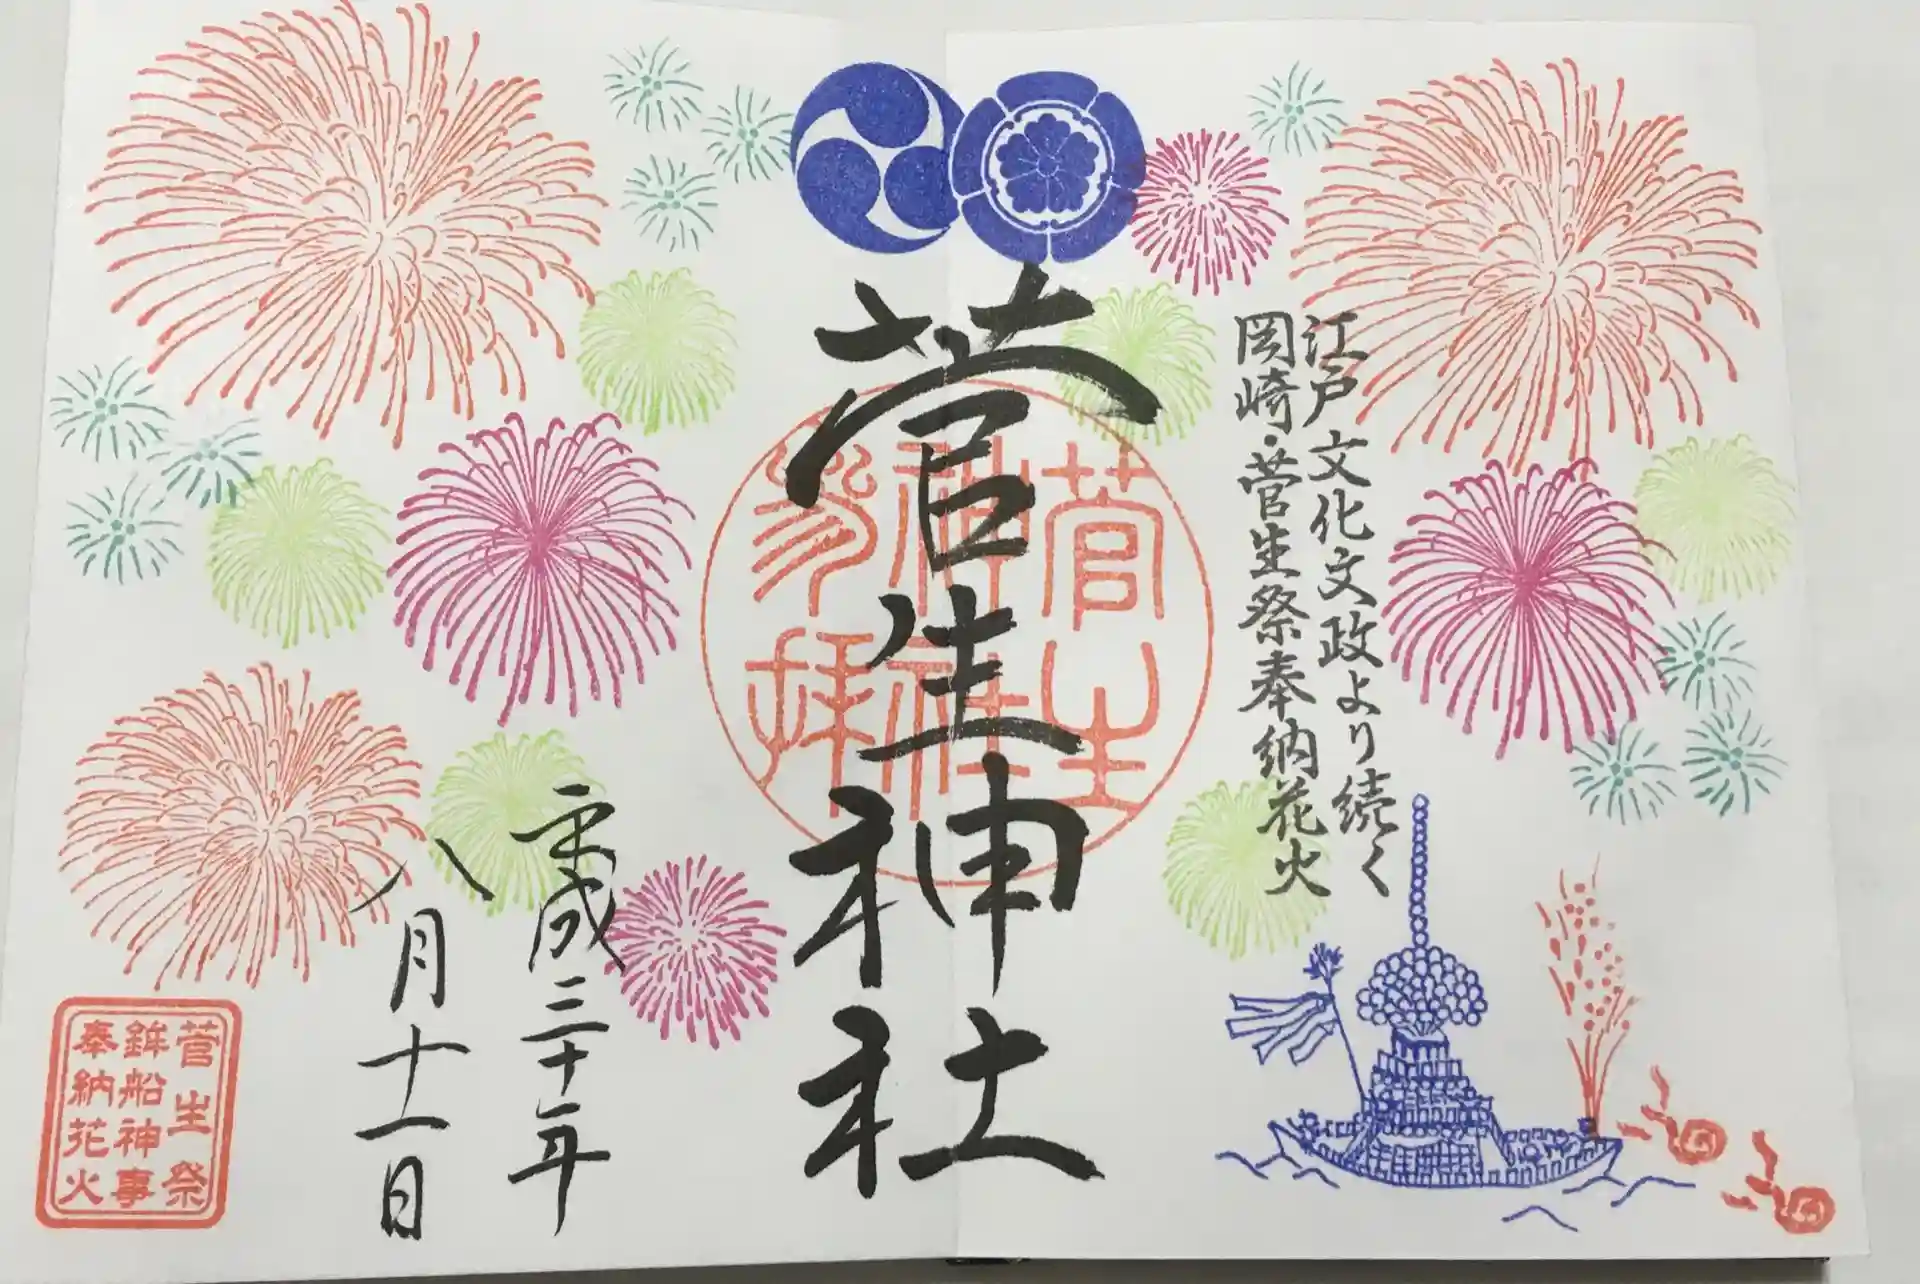 江戸文化文政より続く
岡崎・菅生祭奉納花火
菅生神社
菅生
神社
参拝
平成三十年
八月十一日
菅生祭
鉾船神事
奉納花火